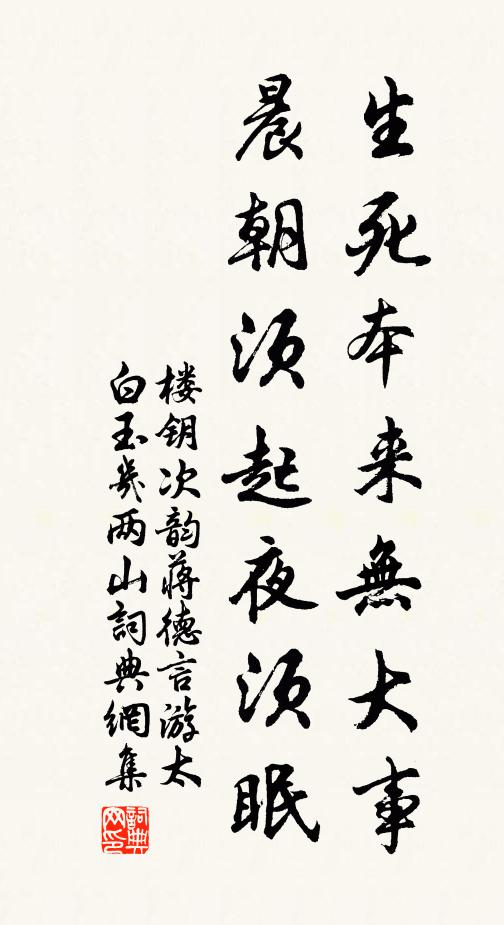 生死本来無大事
晨朝须起夜须眠
楼钥次韵蒋德言游太
白玉几两山詞典網集
詞典网印